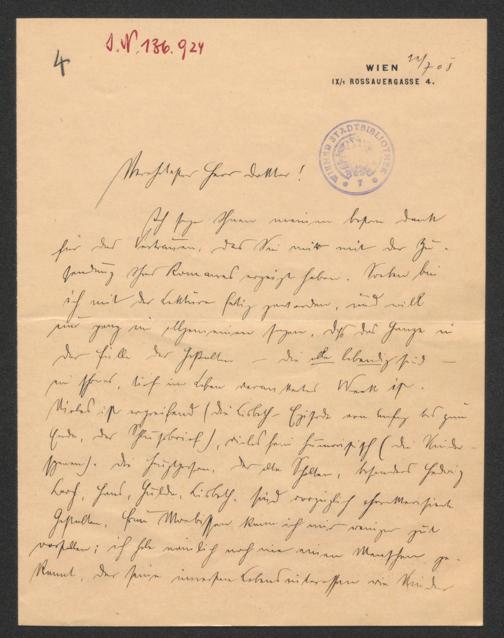 J.N. 136.924
4
WIEN
IX/1 ROSSAUERGASSE 4.
WIENER STADTBIBLIOTHEK
Verehrtester Herr Doktor!
Ich sage Ihnen meinen besten Dank
für das Vertrauen, das Sie mir mit der Zu-
sendung Ihres Romanes erzeigt haben. Soeben bin
ich mit der Lektüre fertig geworden, und will
nur ganz im Allgemeinen sagen, daß das Ganze in
der Fülle der Gestalten – die alle lebendig sind –
ein schönes, tief im Leben verankertes Werk ist.
Vieles ist ergreifend (die Lisbeth-Episode von Anfang bis zum
Ende, der ), vieles fein humoristisch (die Kinder-
szenen). Die Hauptpersonen, der alte , besonders Hedwig
, Hans, , Lisbeth, sind vorzüglich charakterisierte
Gestalten, Frau kann ich mir weniger gut
vorstellen; ich habe nämlich noch nie einen Menschen ge-
kannt, der seine innersten Lebensinteressen wie Kinder